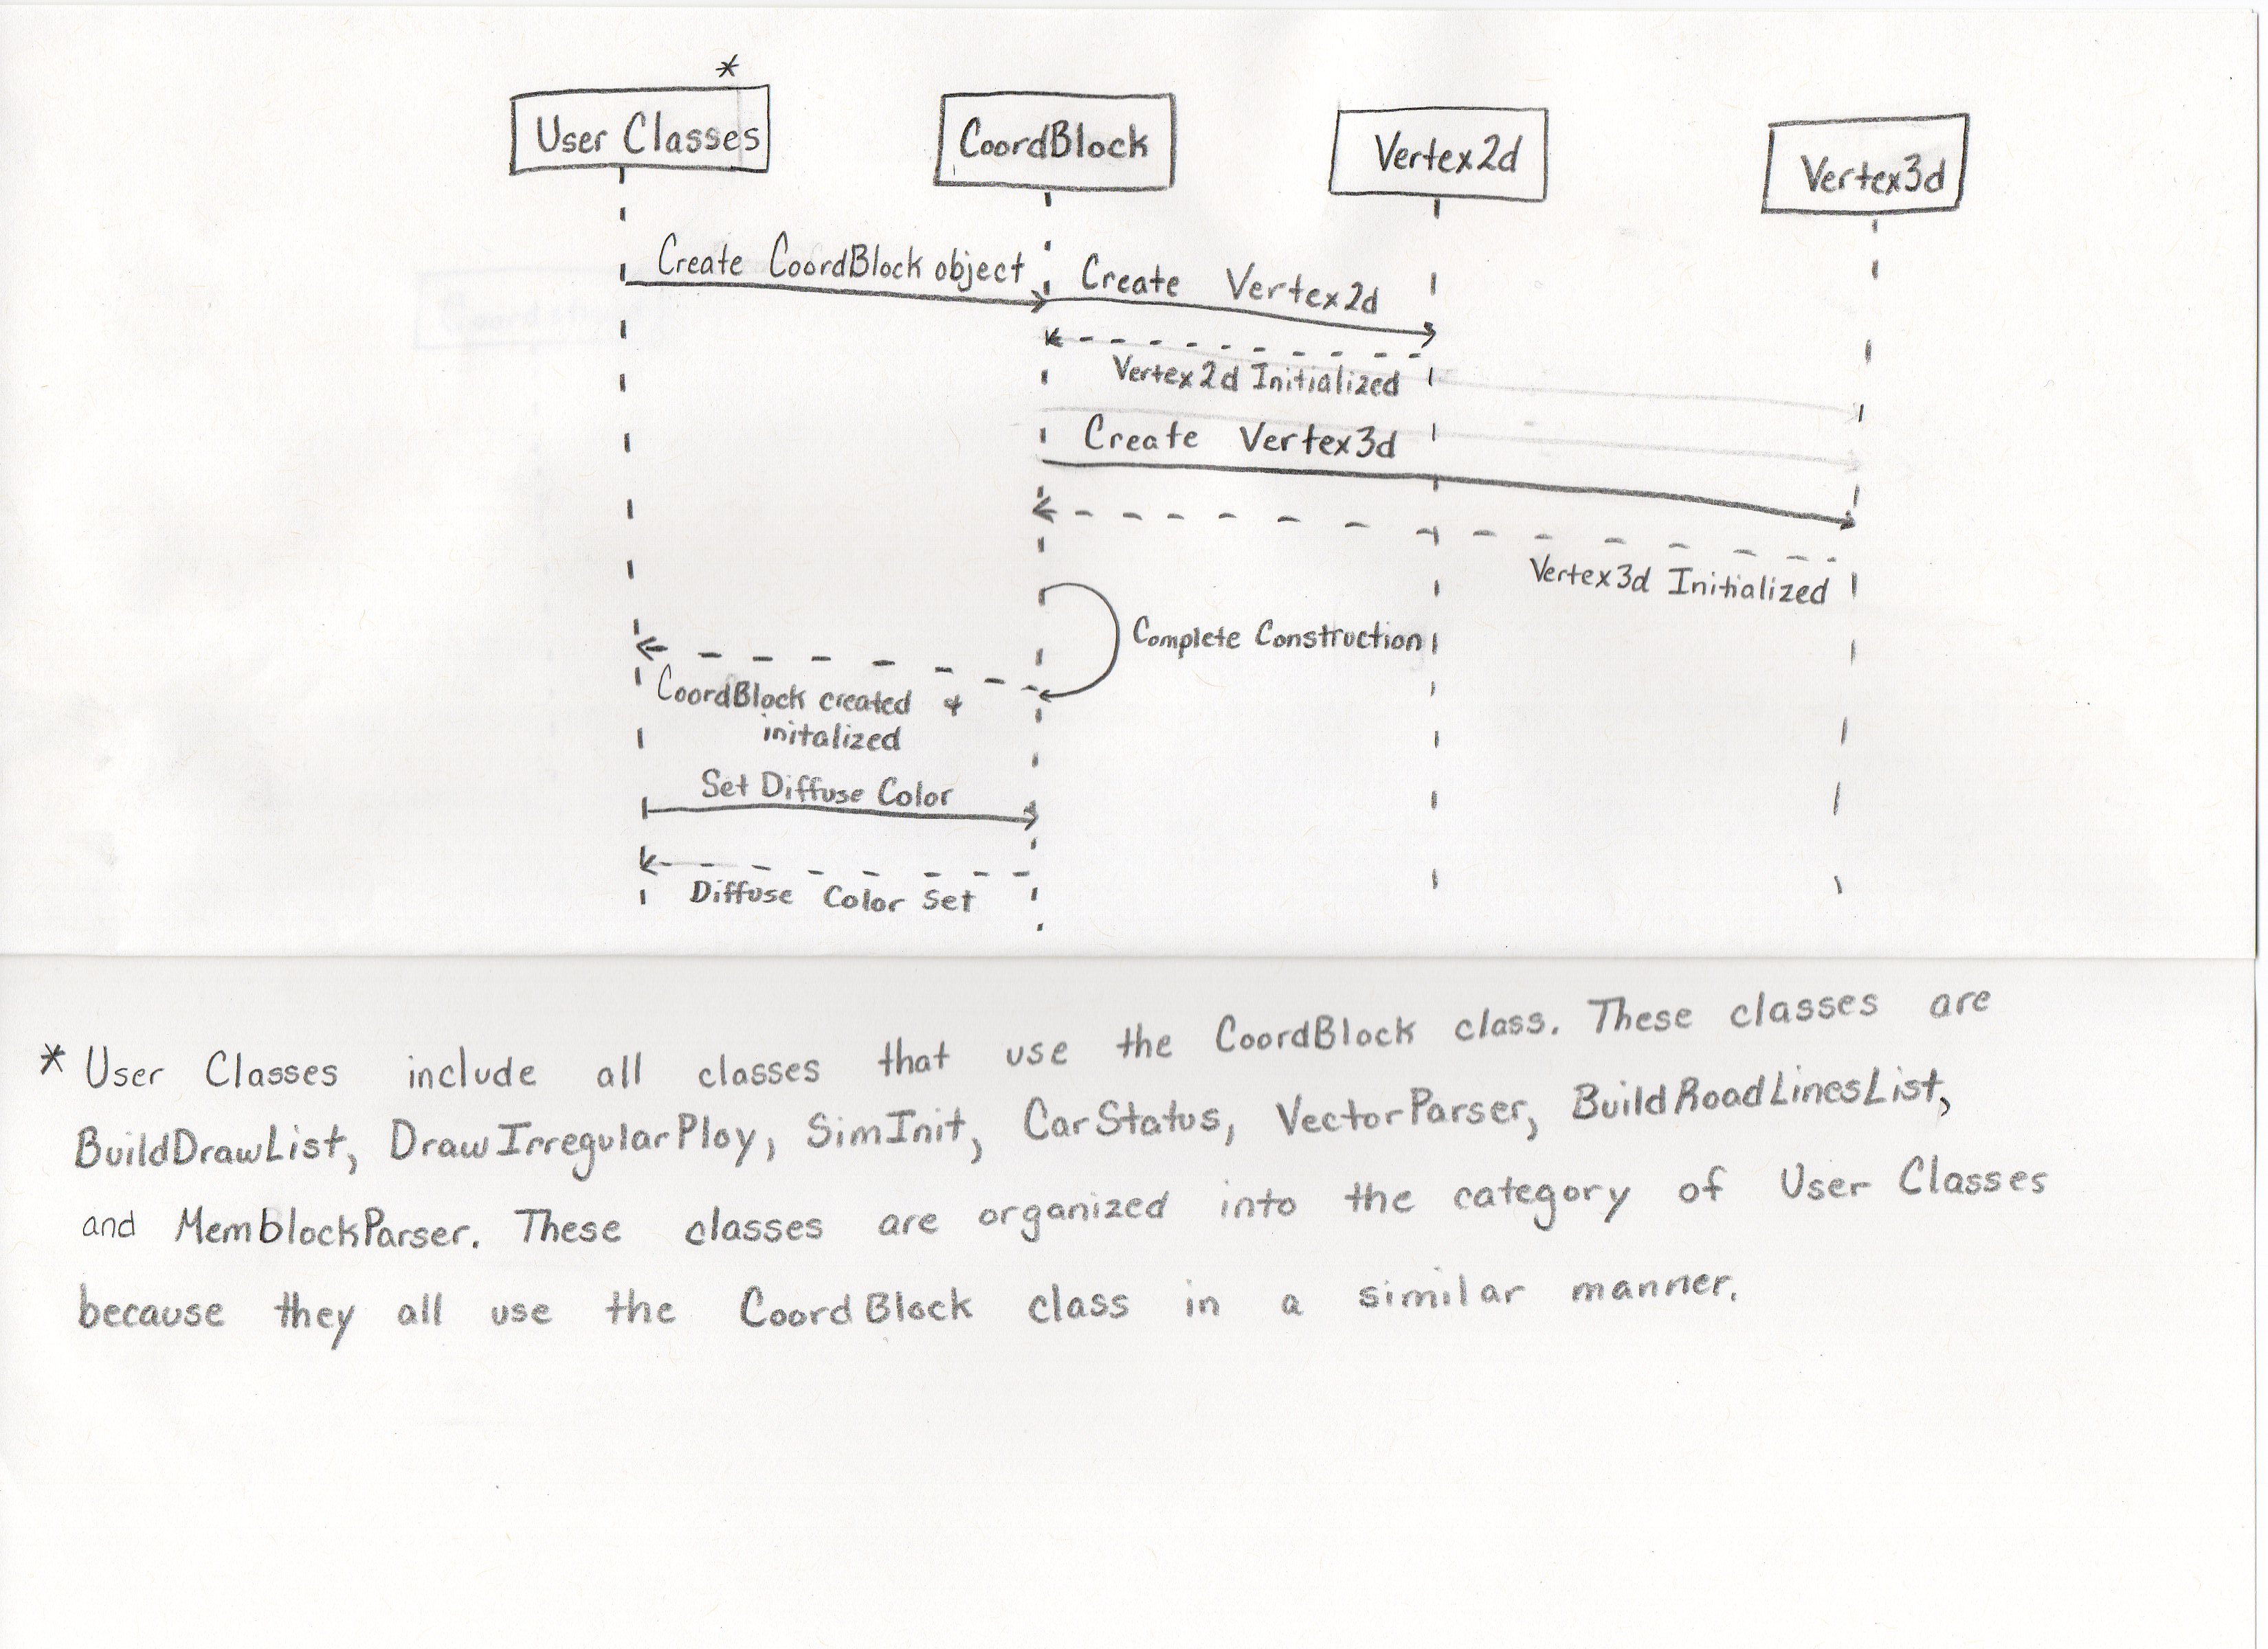 *
User Classes
CoordBlock
Vertex2d
Vertex3d
Create CoordBlock object
Create Vertex2d
Vertex2d Initialized
Create Vertex3d
Vertex3d Initialized
Complete Construction
CoordBlock created &
initalized
Set Diffuse Color
Diffuse Color Set
* User Classes include all classes that use the CoordBlock class. These classes are
BuildDrawList, DrawIrregularPloy, SimInit, CarStatus, VectorParser, BuildRoadLinesList,
and MemblockParser. These classes are organized into the category of User Classes
because they all use the CoordBlock class in a similar manner.